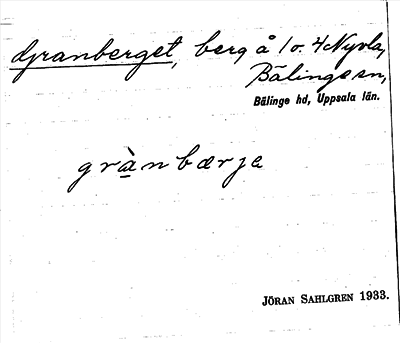 Granberget, berg å 1 o. 4 Nyvla,
Bälinge sn,
Bälinge hd, Uppsala län.
grànbærje
JÖRAN SAHLGREN 1933.